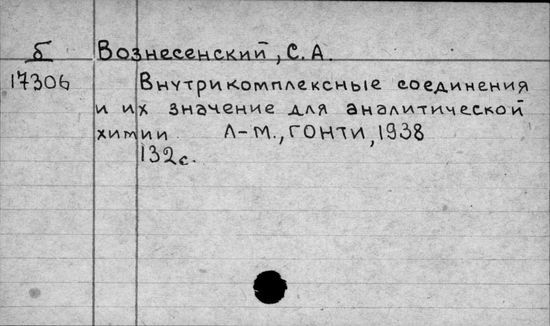 б Вознесенский, С. А.
17306 Внутрикомплексные соединения
и их значение для аналитической
химии Л-М., ГОНТИ, 1938
132с.